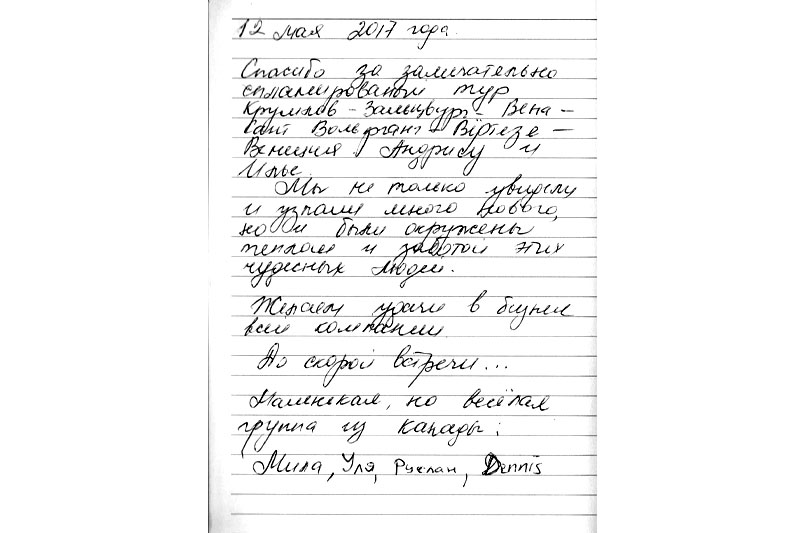 12 мая 2017 года.
Спасибо за замечательно
спланированый тур
Крумлов - Зальцбург - Вена -
Сант Вольфганг - Віртезе -
Венеция Андрису и
Илье.
Мы не только увидели
и узнали много нового,
но и были окружены
теплом и заботой этих
чудесных людей.
Желаем удачи в бизнесе
всей компании
До скорой встречи...
Маленькая, но весёлая
группа из Канады:
Мила, Уля, Руслан, Dennis